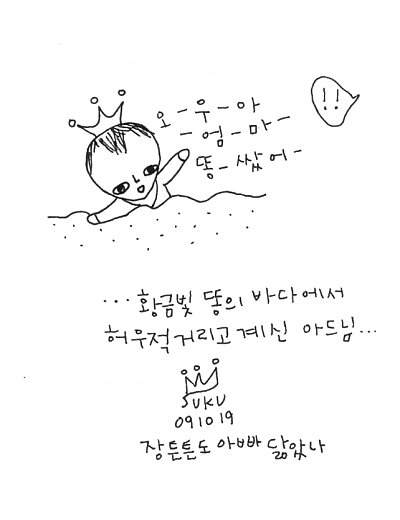 오-우-아
-엄-마-
똥-쌌어-
!!
...황금빛 똥의 바다에서
허우적거리고계신 아드님...
SUKU
091019
장튼튼도 아빠 닮았나